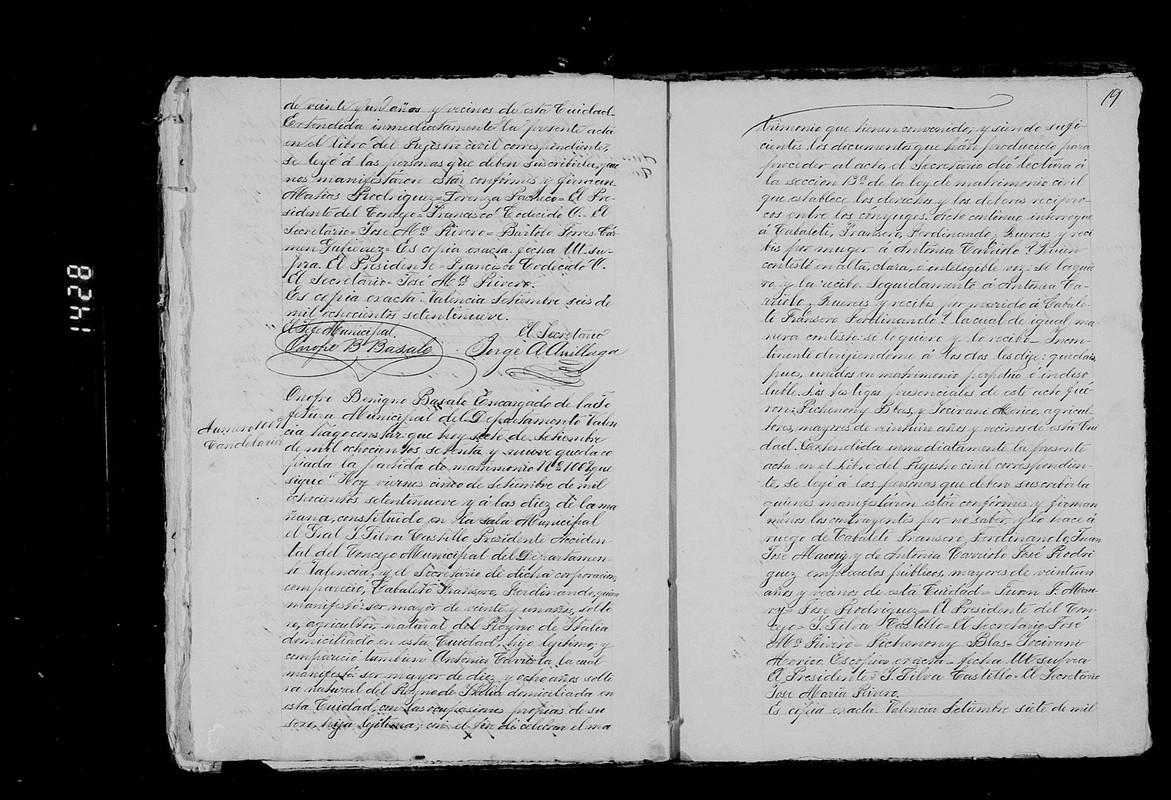 de veinte y un años y vecinos de esta Ciudad.
Extendida inmediatamente la presente acta
en el libro del Registro civil correspondiente,
se leyó á las personas que deben suscribirla, que
nes manifestaron estar conformes y firman
Matias Rodriguez = Lorenza Pacheco = El Pre-
sidente del Concejo = Francisco Codecido V. El
secretario = José Mª Rivero = Bartolo Torres. Car
men Gutierez = Es copia exacta. fecha Ut su-
pra. El Presidente = Francisco Codecido V.
El secretario = José Mª Rivero.
Es copia exacta. Valencia Setiembre seis de
mil ochocientos setentinueve.
El Jefe Municipal
Onofre B Basalo
El Secretario
Jorge A
Número 100
Candelaria
Onofre Benigno Basalo Encargado de la Je
fetura Municipal del Departamento Valen
cia hago constar: que hoy siete de Setiembre
de mil ochocientos setenta y nueve queda co
piada la partida de matrimonio Nº 100 que
sigue "Hoy viernes cinco de Setiembre de mil
ochocientos setentinueve y á las diez de la ma
ñana, constituido en la sala Municipal
el Gral J. Silva Castillo Presidente Acciden
tal del Concejo Municipal del Departamen-
to Valencia, y el Secretario de dicha corporacion,
compareció, Cabaleto Fransero, Ferdinando, quien
manifestó ser mayor de veinte y un años, solte
ro, agricultor, natural del Reyno de Italia
domiciliado en esta Ciudad, hijo lejitimo; y
compareció tambien Antonia Carriola, la cual
manifestó ser mayor de diez y ocho años solte
ra natural del Reyno de Italia domiciliada en
esta Ciudad, con las ocupasiones propias de su
secso, hija lejitima; con el fin de celebrar el ma
19
trimonio que tienen convenido, y siendo sufi-
cientes los documentos que han producido para
proceder al acto, el Secretario dió lectura á
la seccion 13ª de la ley de matrimonio civil
que establece los derechos y los deberes recipro-
cos entre los conyuges. Acto continuo interrogué
á Cabaleti, Fransero, Ferdinando ¿Quereis y reci
bis por muger á Antonia Carriolo? Quien
contestó en alta, clara, é inteligible voz: se la quie
ro, y la recibo. Seguidamente á Antonia Ca-
rriolo ¿Quereis y recibis por marido á Cabale-
ti Fransero Ferdinando? la cual de igual ma
nera contestó: se lo quiero y lo recibo = Incon-
tinente dirijiendome á los dos les dije: quedais,
pues, unidos en matrimonio perpetuo é indiso
luble. Los testigos presenciales de este acto fue
ron: Pichenony Bless, y Socirani Merico, agricul
tores, mayores de veintiun años y vecinos de esta Ciu
dad. Extendida inmediatamente la presente
acta en el libro del Registro civil correspondien-
te, se leyó á las personas que deben suscribirla
quienes manifestaron estar conformes y firman
menos los contrayentes por no saber, y lo hace á
ruego de Cabaleti Fransero, Ferdinando, Juan
José Maury, y de Antonia Carriolo José Rodri
guez empleados públicos, mayores de veintiun
años y vecinos de esta Ciudad = Juan J. Mau-
ry = José Rodriguez = El Presidente del Con-
cejo = J. Silva Castillo = El Secretario José
Mª Rivero = Pichenony Blas = Socirani
Merico Es copia exacta = fecha Ut supra
El Presidente = J. Silva Castillo = El Secretario
José Maria Rivero.
Es copia exacta. Valencia Setiembre siete de mil
1428